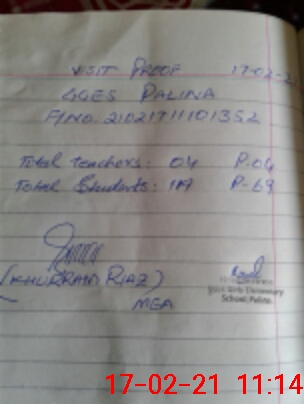 VISIT PROOF 17-02-2
GGES PALINA
F/NO. 21021711101352
Total teachers: 04 P-04
Total Students: 117 P-69
(KHURRAM RIAZ)
MEA
Govt Girls Elementary
School, Palina.
17-02-21 11:14